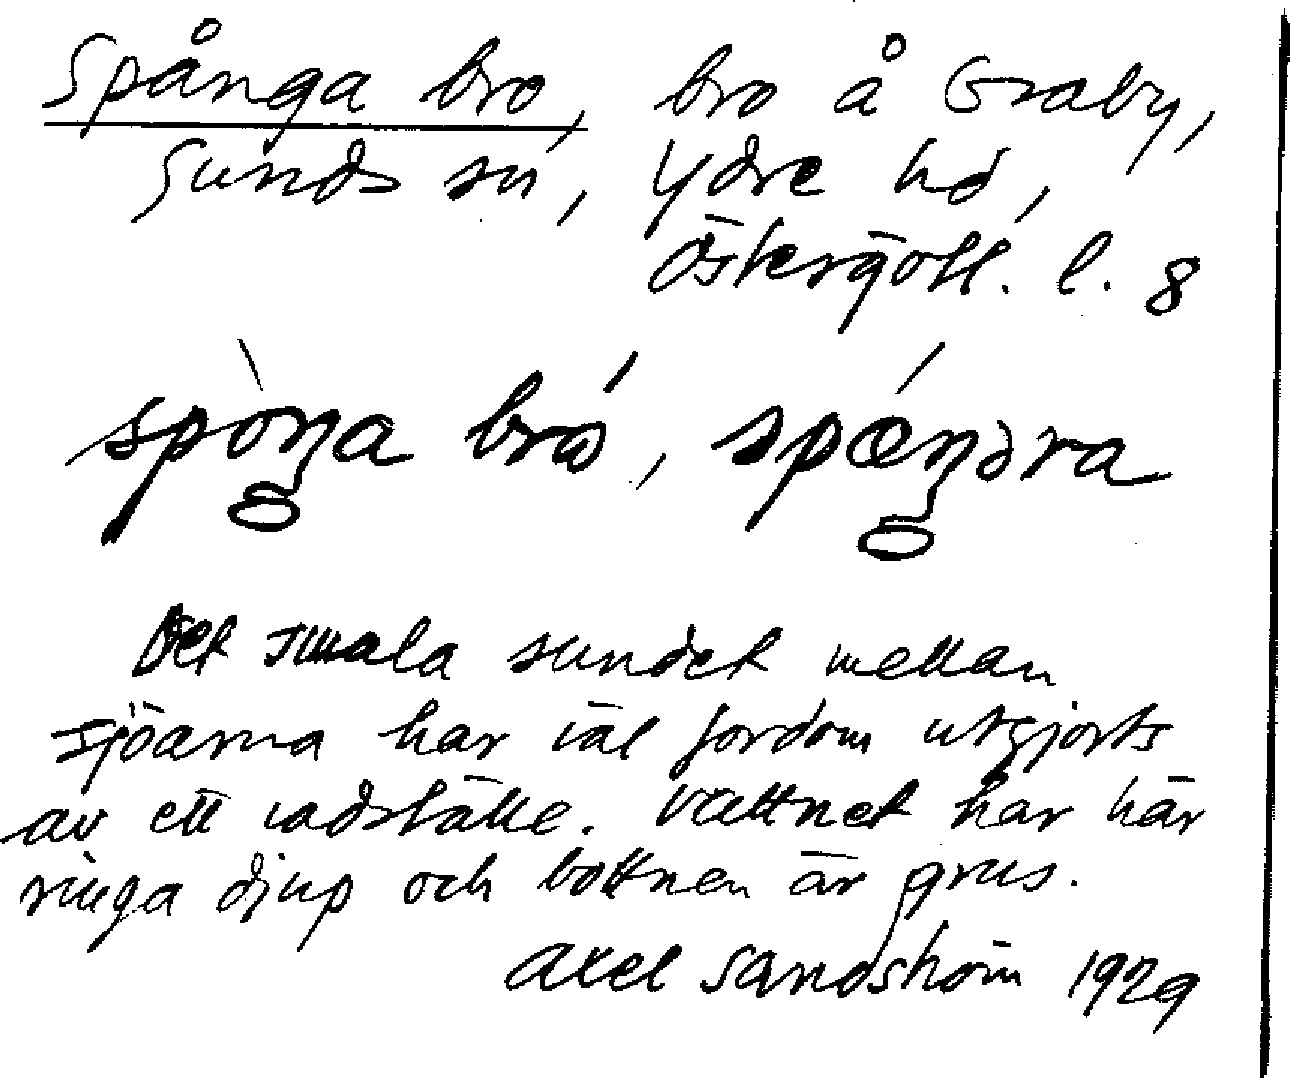 Spånga bro, bro å Graby,
Sunds sn, Ydre hd,
Östergötl. l. 8
Det smala sundet mellan
sjöarna har väl fordom utgjorts
av ett vadställe. Vattnet har här
ringa djup och bottnen är grus.
Axel Sandström 1929